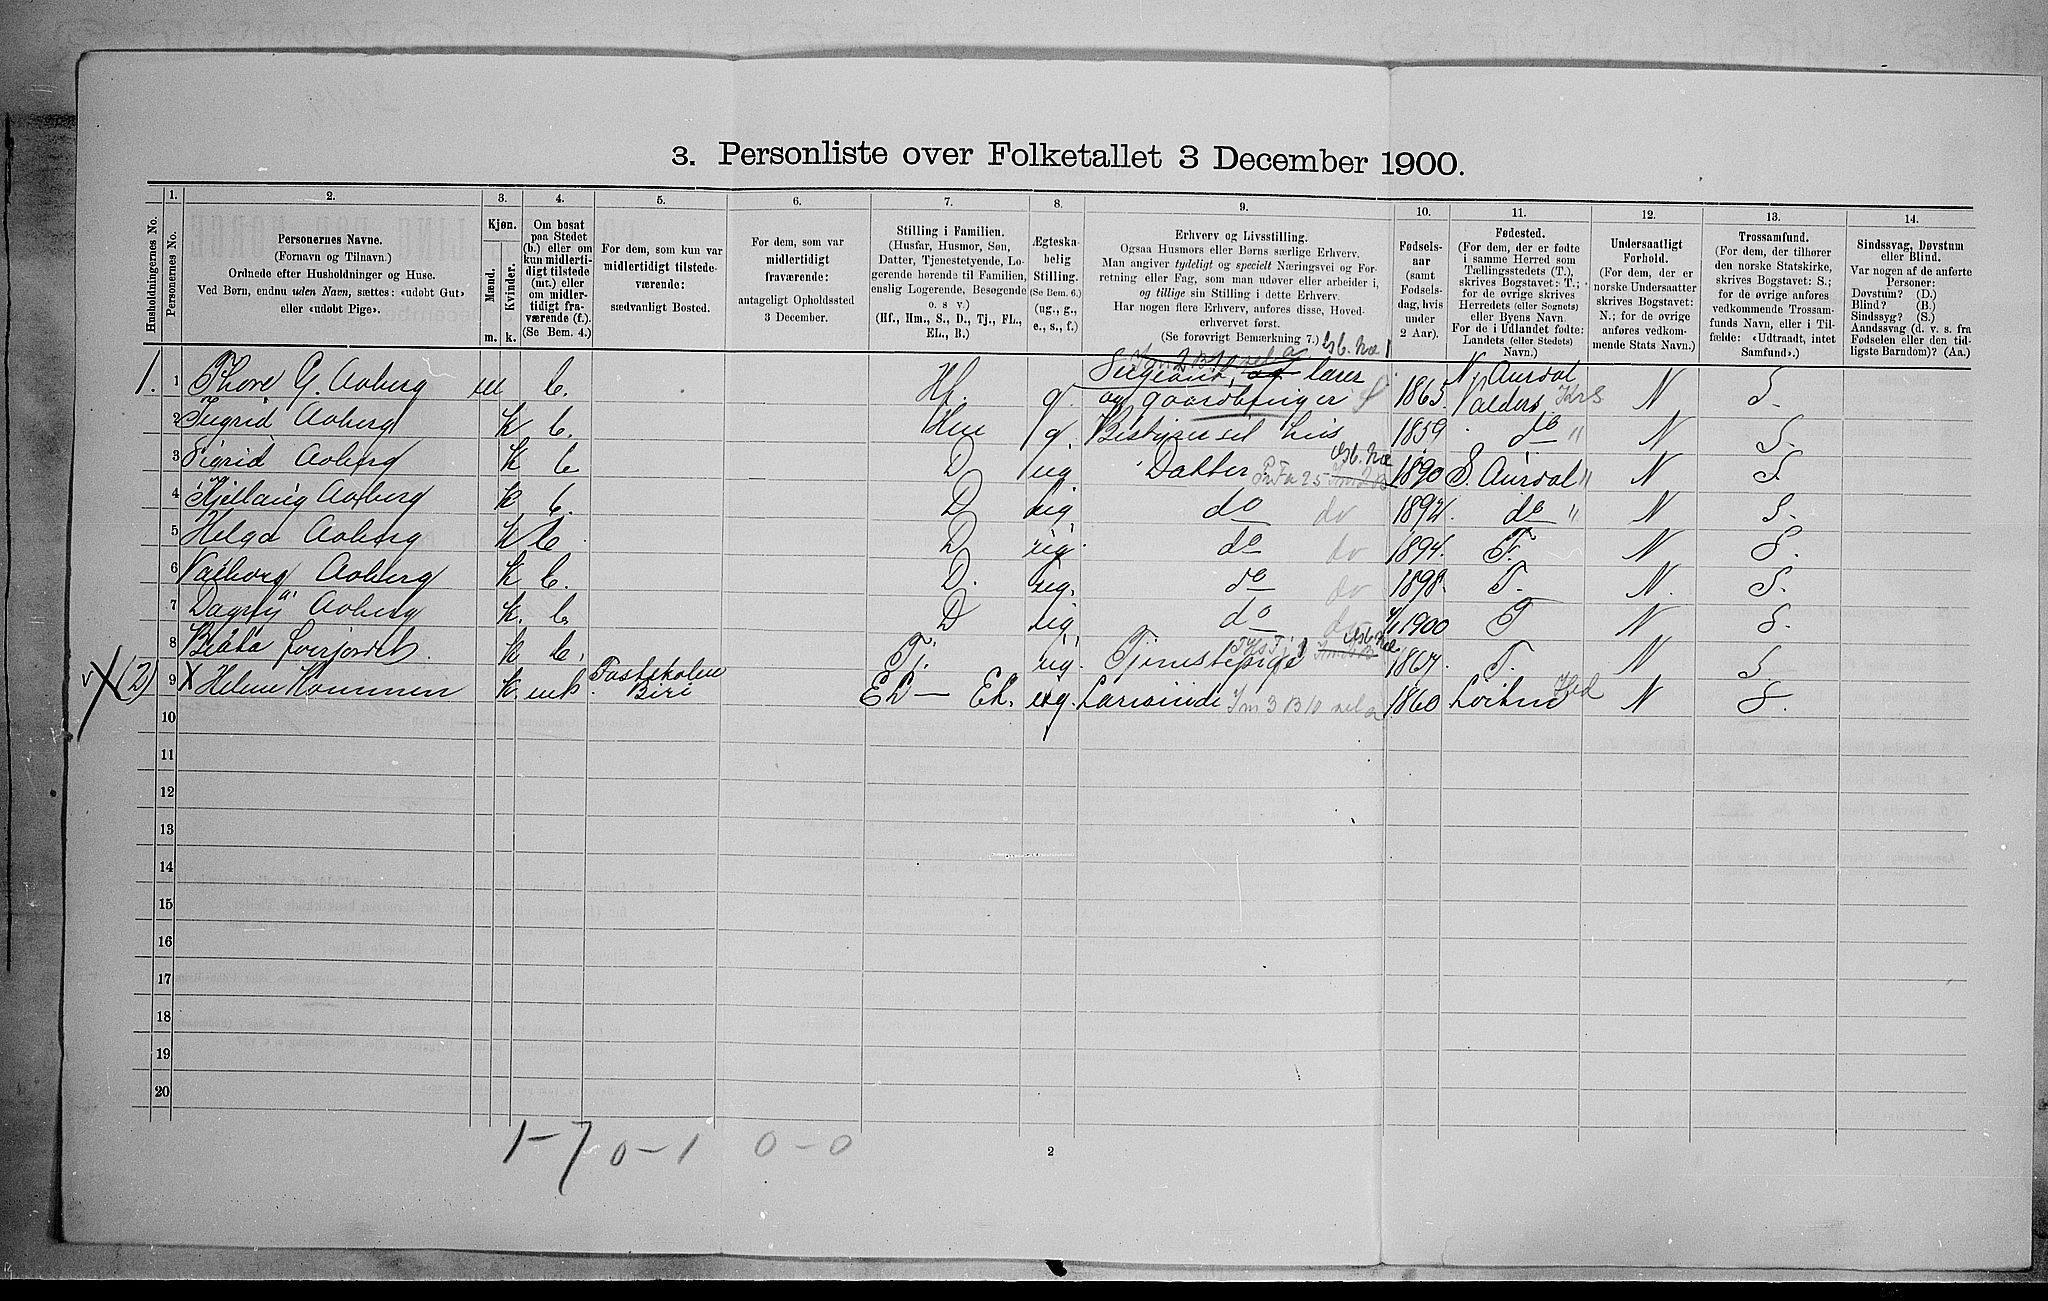 3. Personliste over Folketallet 3 December 1900.
1. 2. 3. 4. 5. 6. 7. 8. 9. 10. 11. 12. 13. 14.
Husholdningernes No.
Personernes No.
Personernes Navne.
(Fornavn og Tilnavn.)
Ordnede efter Husholdninger og Huse.
Ved Børn, endnu uden Navn, sættes: «udøbt Gut»
eller «udøbt Pige».
Kjøn.
Mænd.
Kvinder.
m. k.
Om bosat
paa Stedet
(b.) eller om
kun midlerti-
digt tilstede
(mt.) eller
om midler-
tidigt fra-
værende (f.).
(Se Bem. 4.)
For dem, som kun var
midlertidigt tilstede-
værende:
sædvanligt Bosted.
For dem, som var
midlertidigt
fraværende:
antageligt Opholdssted
3 December.
Stilling i Familien.
(Husfar, Husmor, Søn,
Datter, Tjenestetyende, Lo-
gerende hørende til Familien,
enslig Logerende, Besøgende
o. s v.)
(Hf., Hm., S., D., Tj., FL.,
EL., B.)
Ægteska-
belig
Stilling.
(Se Bem. 6.)
(ug., g.,
e., s., f.)
Erhverv og Livsstilling.
Ogsaa Husmors eller Børns særlige Erhverv.
Man angiver tydeligt og specielt Næringsvei og For-
retning eller Fag, som man udøver eller arbeider i,
og tillige sin Stilling i dette Erhverv.
Har nogen flere Erhverv, anføres disse, Hoved-
erhvervet først.
(Se forøvrigt Bemærkning 7.)
Fødsels-
aar
(samt
Fødsels-
dag, hvis
under
2 Aar).
Fødested.
(For dem, der er fødte
i samme Herred som
Tællingsstedets (T.),
skrives Bogstavet: T.;
for de øvrige skrives
Herredets (eller Sognets)
eller Byens Navn.
For de i Udlandet fødte:
Landets (eller Stedets)
Navn.)
Undersaatligt
Forhold.
(For dem, der er
norske Undersaatter
skrives Bogstavet:
N.; for de øvrige
anføres vedkom-
mende Stats Navn.)
Trossamfund.
(For dem, der tilhører
den norske Statskirke,
skrives Bogstavet: S.;
for de øvrige anføres
vedkommende Trossam-
funds Navn, eller i Til-
fælde: «Udtraadt, intet
Samfund».)
Sindssvag, Døvstum
eller Blind.
Var nogen af de anførte
Personer:
Døvstum? (D.)
Blind? (B.)
Sindssyg? (S.)
Aandssvag (d. v. s. fra
Fødselen eller den tid-
ligste Barndom)? (Aa.)
1. 1 Thore G. Aaberg m b. Hf. g. Sergeant, og lærer og gaardbruger 1865. N. Aurdal Valders N S.
2 Ingrid Aaberg k b. Hm g. Bestyrer sit hus 1859 do " N S.
3 Sigrid Aaberg k b D ug Datter 1890 S. Aurdal " N S
4 Kjellaug Aaberg k b. D ug. do do 1892. do " N S.
5 Helga Aaberg k b D ug. do do 1894. T. N S.
6 Valborg Aaberg k b. D. ug. do do 1898. T. N. S.
7 Dagny Aaberg k. b. D ug do 1900 T N S.
8 k b. Tj. ug. Tjenestepige 1867. T. N S
X (2) 9 X Helene k. mt. Biri EL — EL. ug. Lærerinde 1860 Løiten Hed N S.
10
11
12
13
14
15
16
17
18
19
20
1-7 0-1 0-0
2